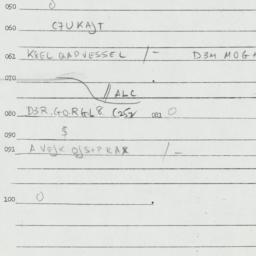 050 0
060 C7UKAJT
061 KXEL QADVESSEL /- D3M MOGA
070
ALC
080 D3R.GORGL8 C252 081 0
090 $
091 A VEJK QJS+PKAX /-
100 0